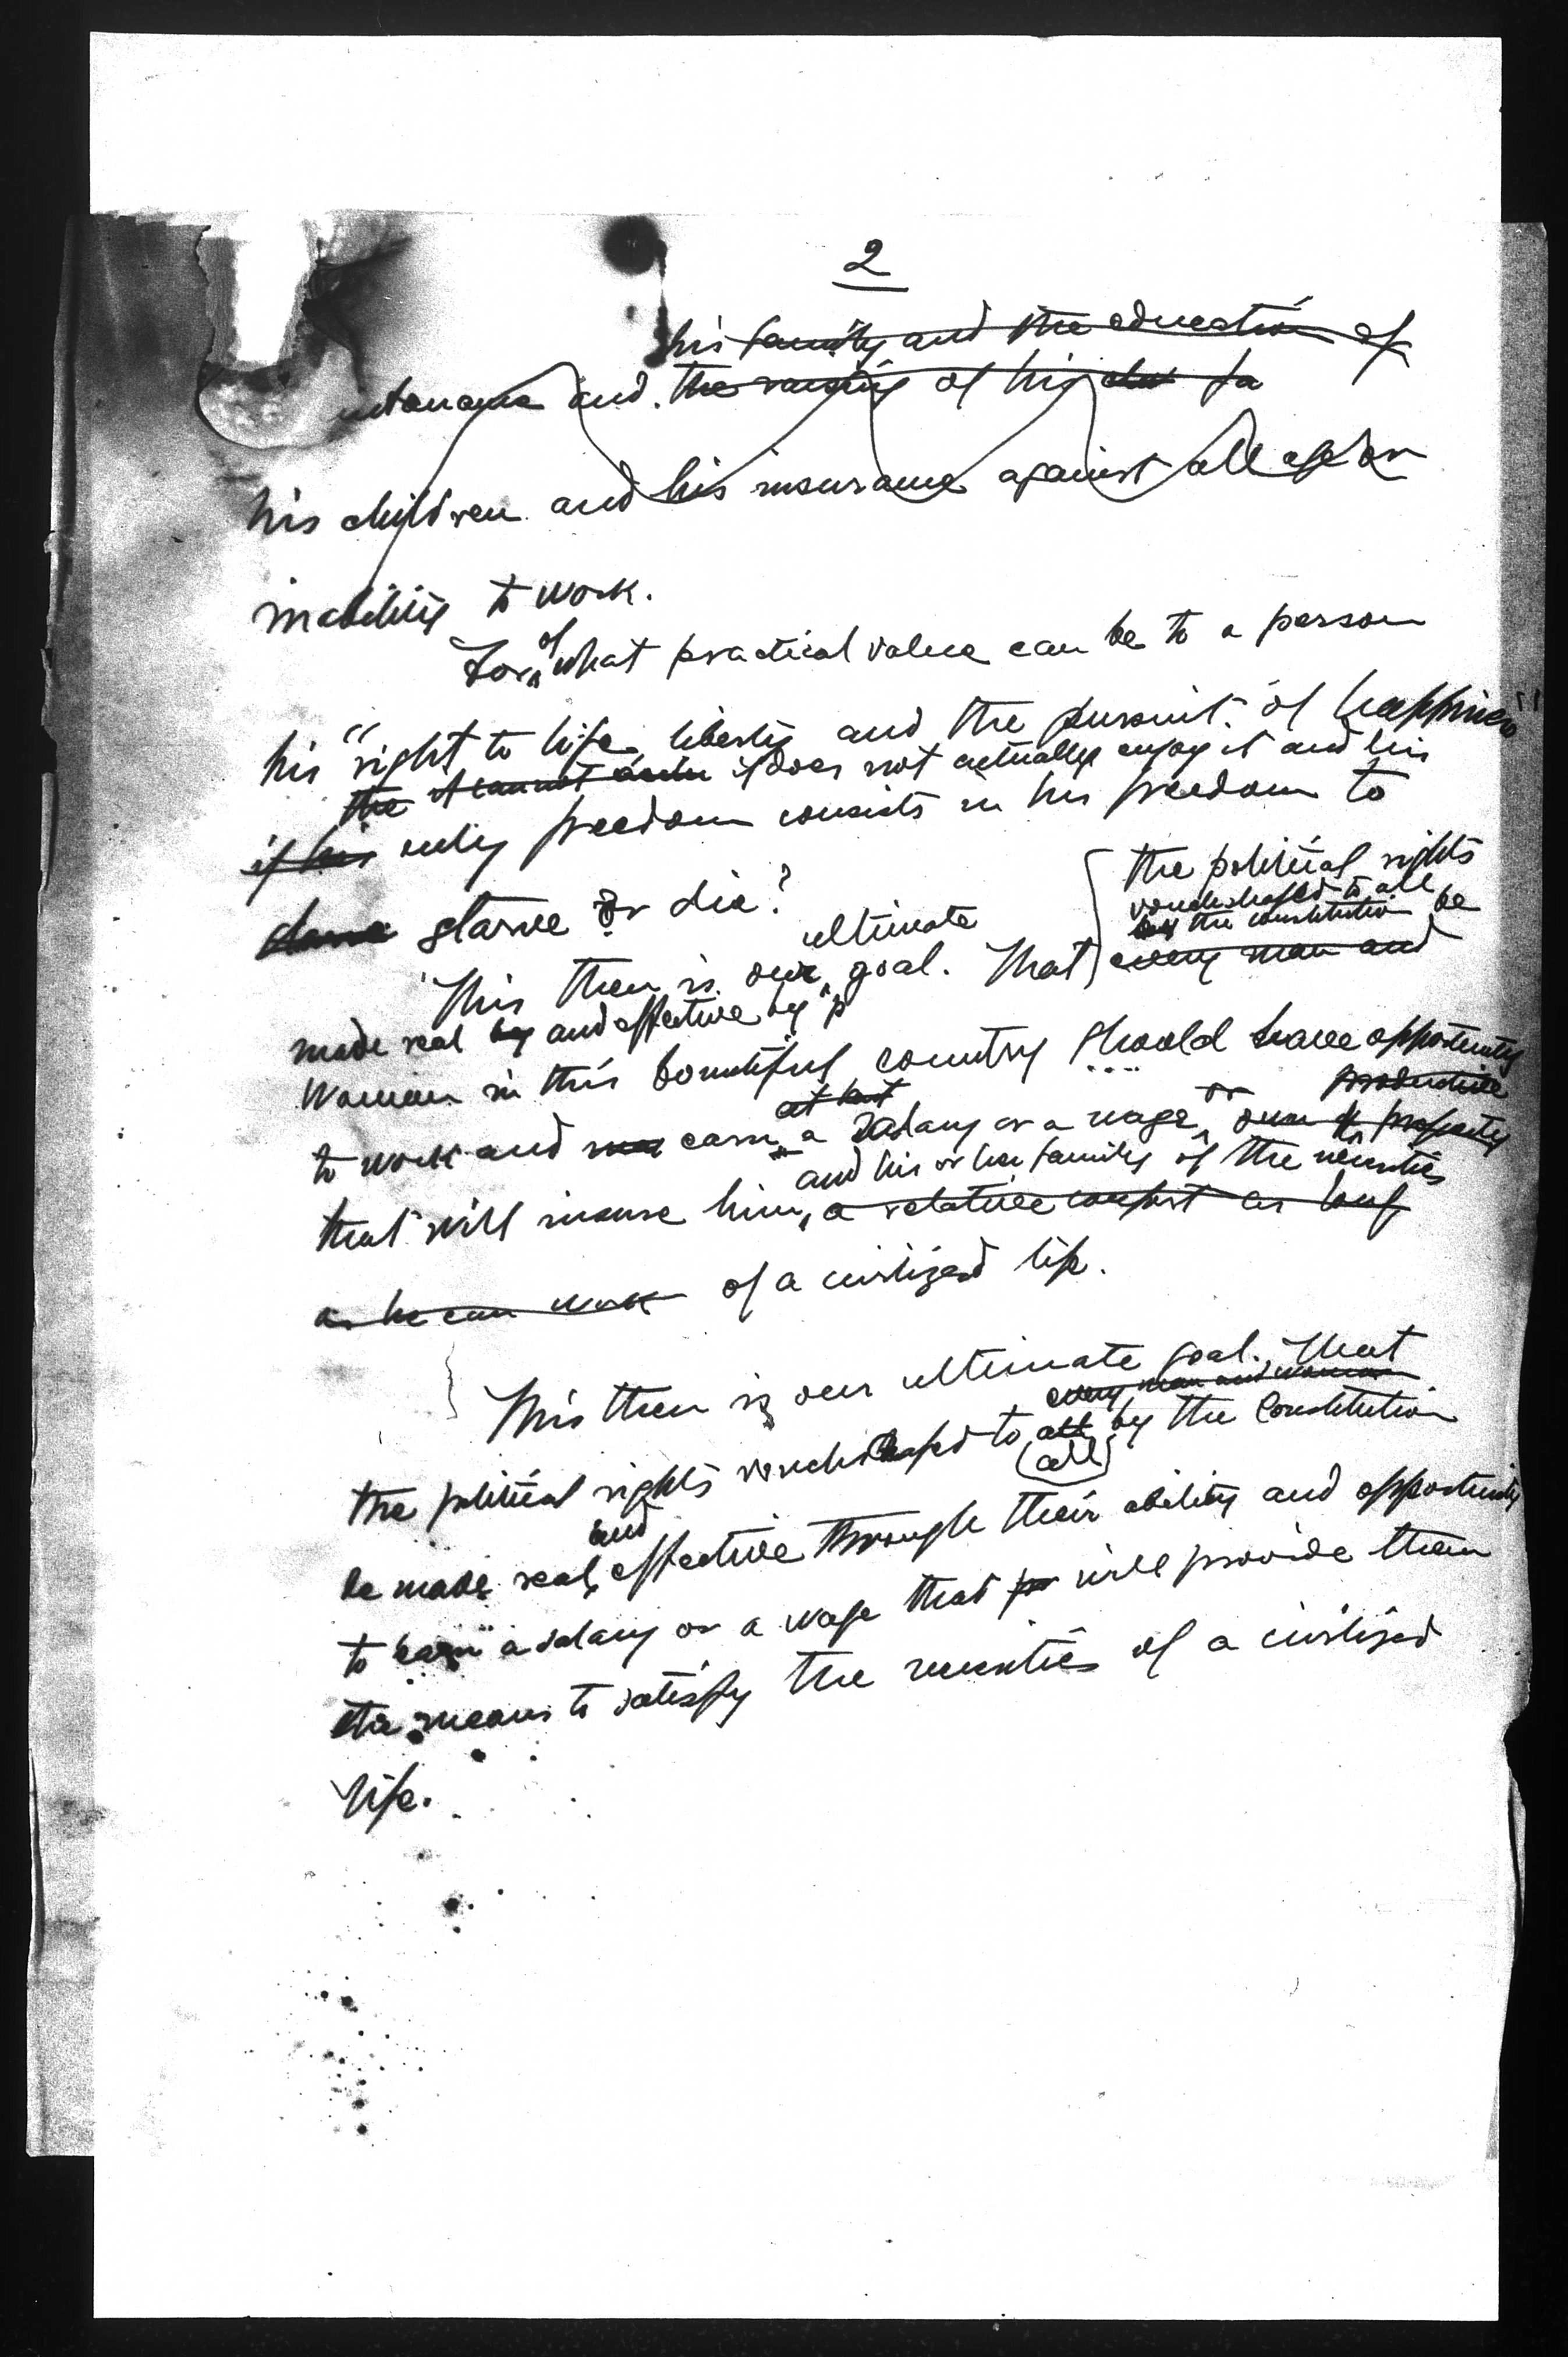 2
his family and the education of
and the raising of his fa
his children and his insurance against old age or
inability to work.
of
For what practical value can be to a person
his "right to life, liberty and the pursuit of happiness"
the it cannot if does not actually enjoy it and his
if his only freedom consists in his freedom to
starve or die?
the political rights
vouchsafed to all
by the constitution be
ultimate
This then is our goal. That every man and
made real by and effective by
woman in this bountiful country should have opportunity
at least or productive
to work and earn a salary or a wage own property
and his or her family of the necessities
that will insure him, a relative comfort as long
as he can work of a civilized life.
This then is our ultimate goal. That
every man and woman
the political rights vouchsafed to all by the Constitution
(all)
and
be made real, effective through their ability and opportunity
to earn a salary or a wage that will provide them
the means to satisfy the necessities of a civilized
life.